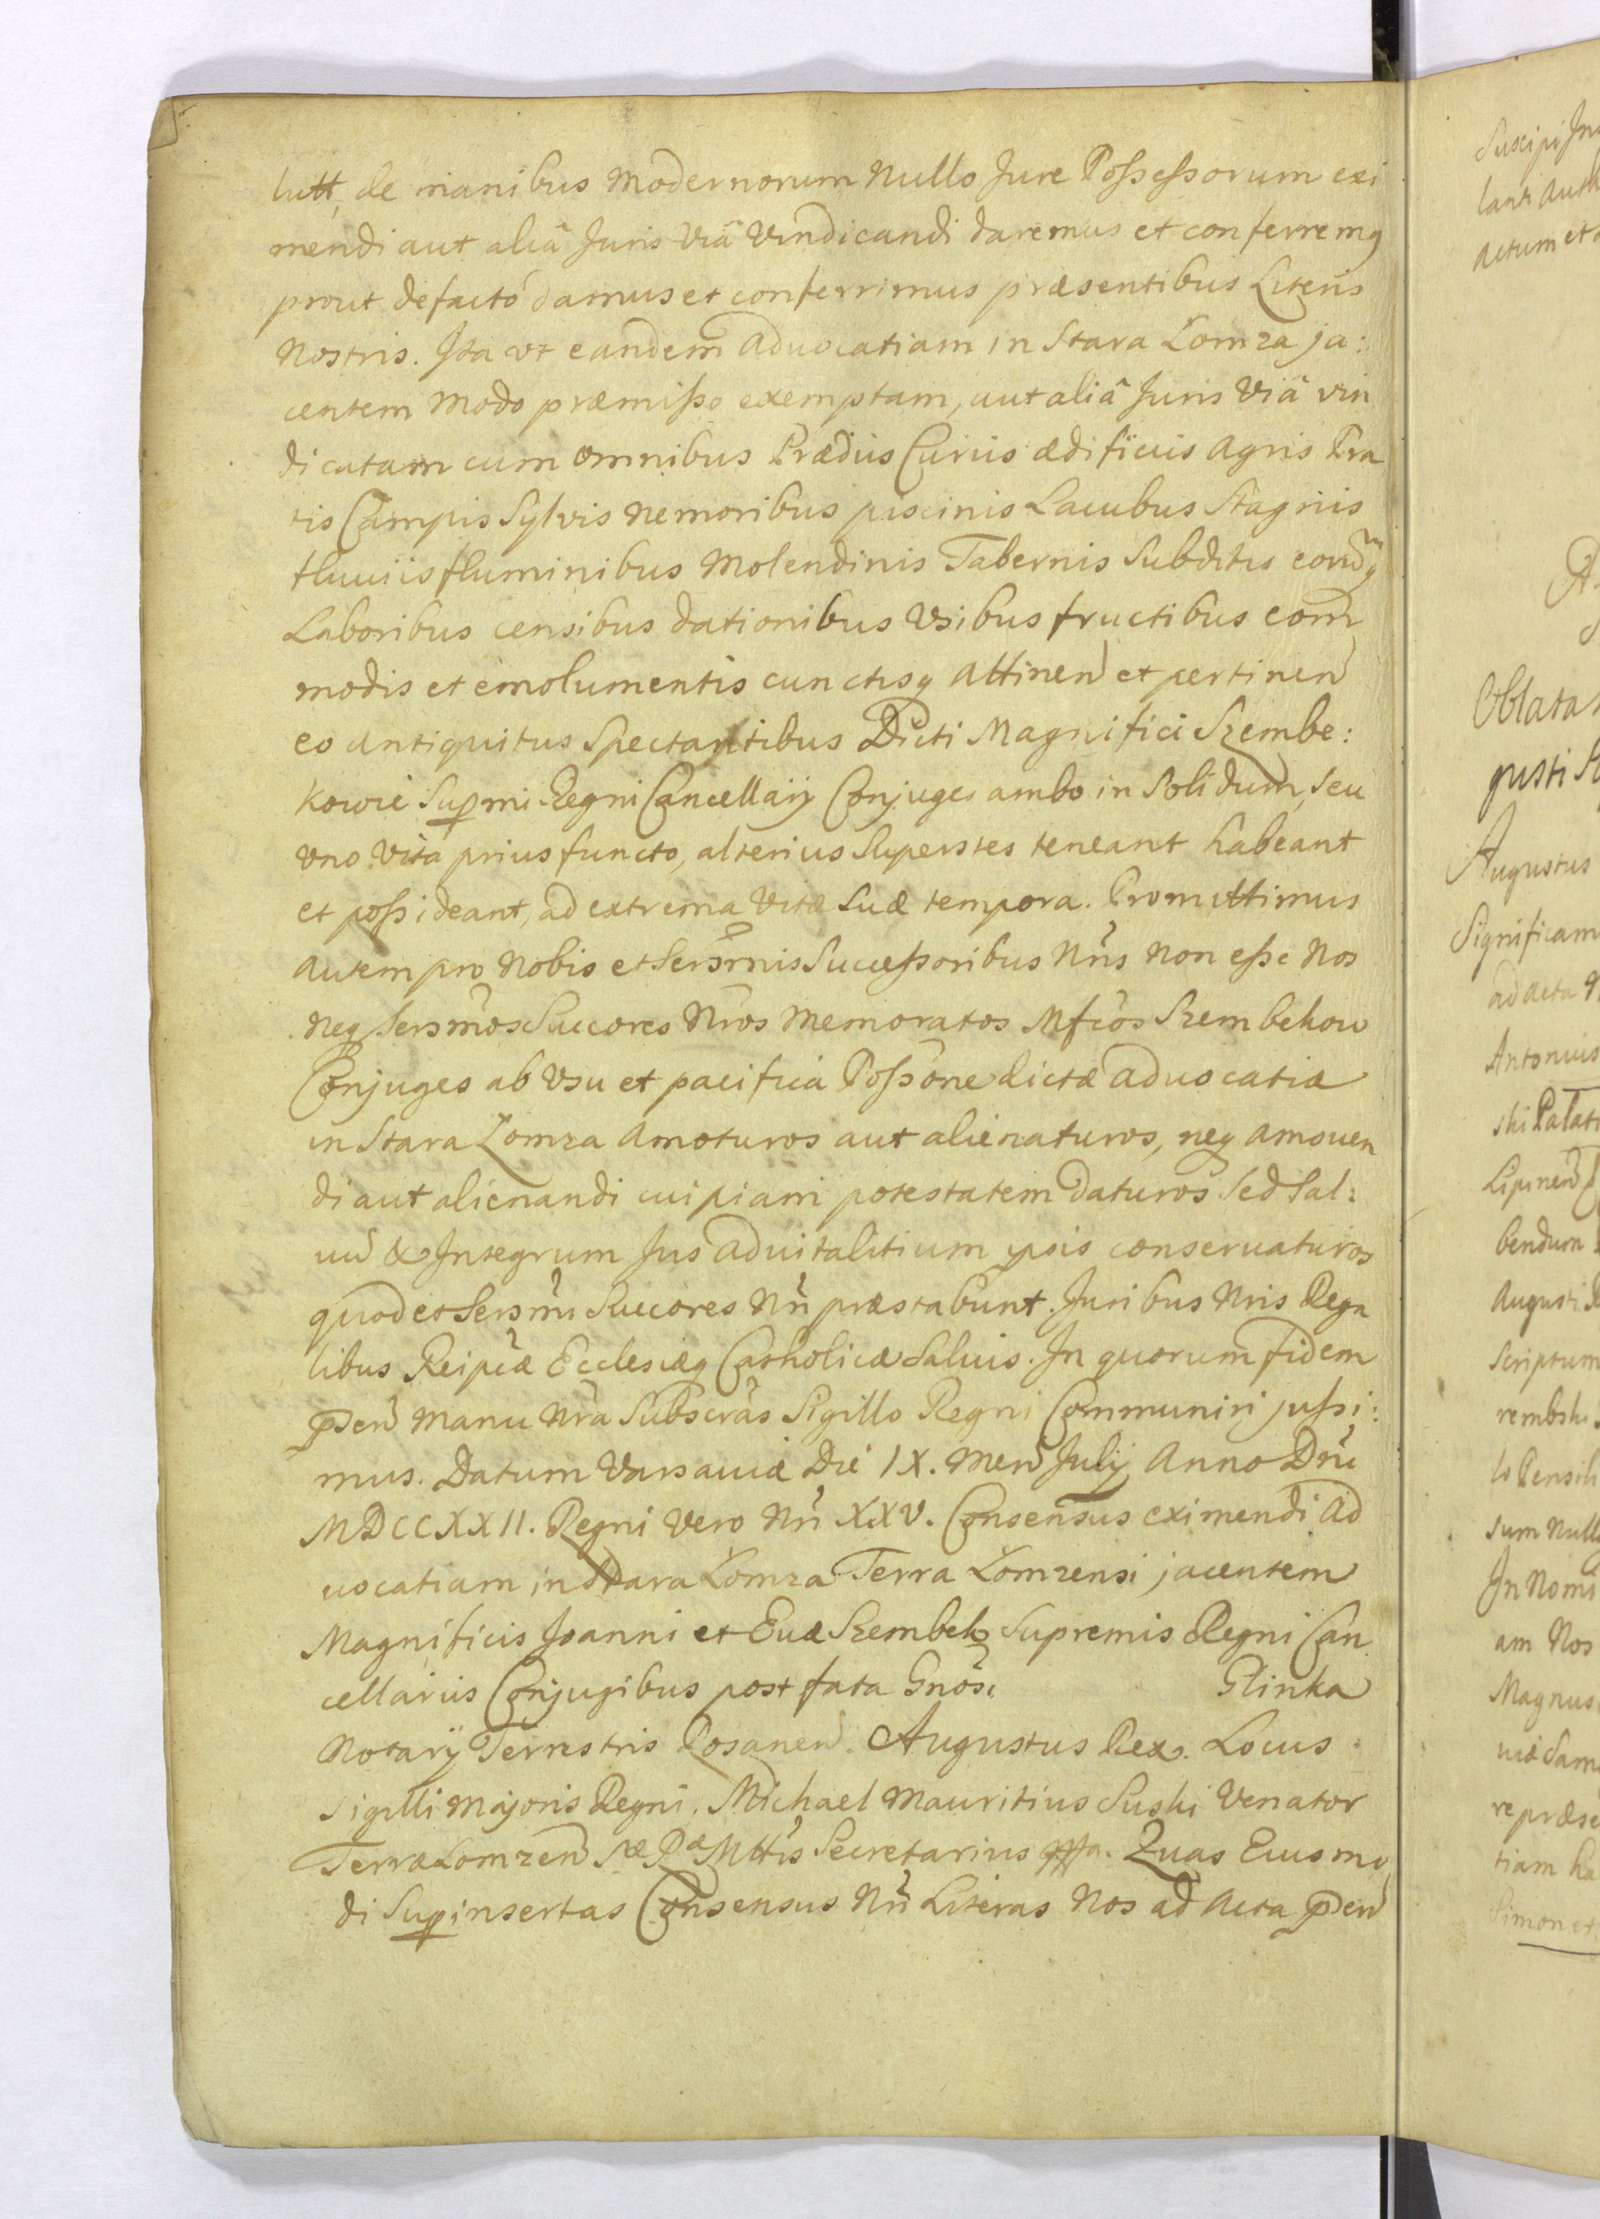 lutt, de manibus Modernorum Nullo Jure Possessorum exi
mendi aut aliâ Juris Viâ Vindicandi daremus et conferremq
prout defacto damus et conferrimus præsentibus Literis
Nostris. Ita vt eandem Aduocatiam in Stara Łomza ja:
centem Modo præmisso exemptam, aut aliâ Juris Viâ vin
dicatam cum omnibus Prædiis Curiis ædificiis Agris Pra
tis Campis Sylvis Nemoribus piscinis Lacubus Stagnis
fluviis fluminibus Molendinis Tabernis Subditis eorumq
Laboribus censibus dationibus Vsibus fructibus com
modis et emolumentis cunctisq Attinen et pertinen
eo Antiquitus Spectantibus Dicti Magnifici Szembe:
kowie Suprmi Regni Cancellarij Conjuges ambo in Solidum, Seu
vno Vita prius functo, alterius Superstes teneant habeant
et possideant, ad extrema Vitæ Suæ tempora. Promittimus
Autem pro Nobis et Sersmnis Successoribus Nris Non esse Nos
Neq Sersmos Succores Nros Memoratos Mfcos Szembekow
Conjuges ab Vsu et pacifica Possone dictæ Aduocatiæ
in Stara Łomza Amoturos aut alienaturos, neq Amouen
di aut alienandi cuipiam potestatem daturos Sed Sal:
uu & Integrum Jus Aduitalitium ipsis conseruaturos
quod et Sersmi Succores Nri præstabunt. Juribus Nris Rega
libus Reipcæ Ecclesiæq Catholicæ Saluis. In quorum fidem
præsen Manu Nra Subscras Sigillo Regni Communiri jussi:
mus. Datum Varsaviæ Die IX. Men July Anno Dni
MDCCXXII. Regni Vero Nri XXV. Consensus eximendi Ad
uocatiam in Stara Łomza Terra Łomzensi jacentem
Magnificis Joanni et Euæ Szembek Supremis Regni Can
cellariis Conjugibus post fata Gnosi Glinka
Notarij Terrestris Rosanen. Augustus Rex. Locus
Sigilli Majoris Regni. Michael Mauritius Suski Venator
Terræ Łomzen Sæ Ræ Mttis Secretarius mppa. Quas Eiusmo
di Suprinsertas Consensus Nri Literas Nos ad Acta præsen
Lanti Auth
Actum et
Oblata
gusti
Augustus
Significam
ad Acta
Antonius
ski Palati
Lipnen
bendum
Augusti
Scriptum
rembski
lo Pensili
sum Null
In Nomi
am Nos
Magnus
re præse
tiam ha
Simon et